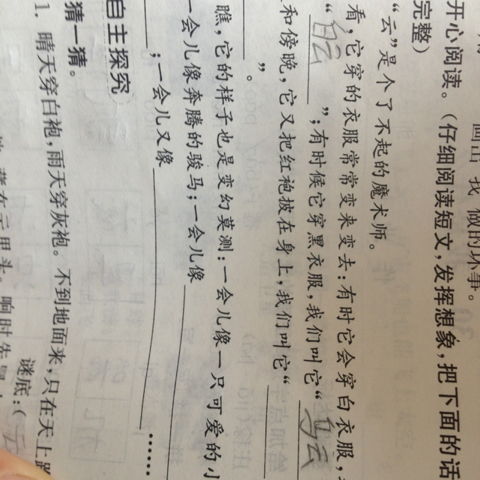 画出 我 做的坏事。
开心阅读。(仔细阅读短文,发挥想象,把下面的话
完整)
“云”是个了不起的魔术师。
看,它穿的衣服常常变来变去:有时它会穿白衣服,
“白云”;有时候它穿黑衣服,我们叫它“乌云
和傍晚,它又把红袍披在身上,我们叫它“
”。
瞧,它的样子也是变幻莫测:一会儿像一只可爱的小
一会儿像奔腾的骏马;一会儿像
;一会儿又像……
自主探究
猜一猜。
1. 晴天穿白袍,雨天穿灰袍。不到地面来,只在天上跑
谜底:(云
藏在云里头。响时先